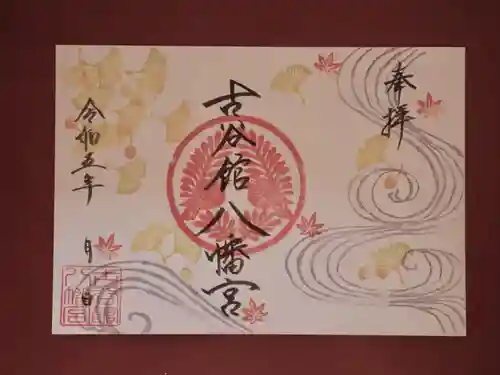 奉拝
古谷館八幡宮
令和五年
月
日